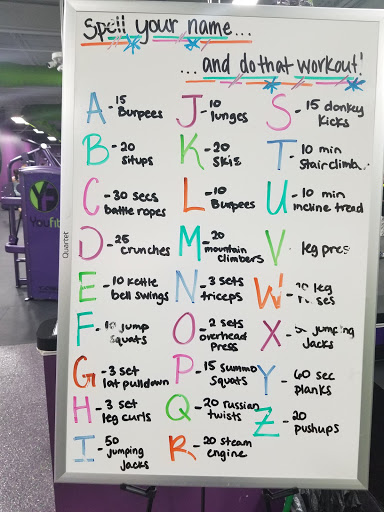 Spell your name...
...and do that workout!
A - 15 Burpees
B - 20 situps
C - 30 secs battle ropes
D - 25 crunches
E - 10 kettle bell swings
F - jump squats
G - 3 set lat pulldown
H - 3 set leg curls
I - 50 jumping Jacks
J - 10 lunges
K - 20 skiz
L - 10 Burpees
M - 20 mountain climbers
N - 3 sets triceps
O - 2 sets overhead press
P - 15 summo squats
Q - 20 russian twists
R - 20 steam engine
S - 15 donkey kicks
T - 10 min stairclimb
U - 10 min incline tread
V - leg pres
W - leg
X - jumping Jacks
Y - 60 sec planks
Z - 20 pushups
Quartet
Youfit